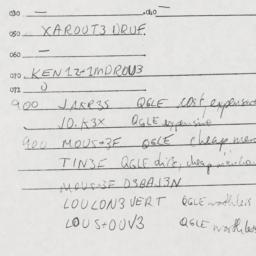 030 — 040 —
050 XAROUT3 DRUF
060 —
070 KEN12-1MDROU3
073 0
900 JAKR3S QGLE cost, expensive
JO.K3X QGLE expensive
900 MOUS+3F QGLE cheap
TIN3F QGLE cheap
MOUS+3F D3BAJ3N
LOULON3VERT QGLE worthless
LOUS+OUV3 QGLE worthless